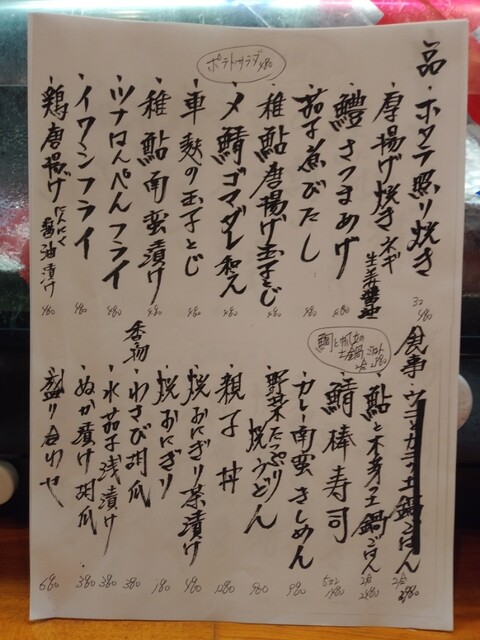 ポテトサラダ 480
品
・ホタテ照り焼き 3コ 480
・厚揚げ焼き ネギ 生姜醤油
・鱧さつまあげ 480
・茄子煮びたし 480
・稚鮎唐揚げ玉子とじ 480
・〆鯖ゴマダレ和え 480
・車麩の玉子とじ 480
・稚鮎南蛮漬け 480
・ツナはんぺんフライ 480
・イワシフライ 480
・鶏唐揚げ にんにく醤油漬け 480
食事
鯛と帆立の土鍋
・鮎と木の芽の土鍋ごはん 2合 2480
・鯖棒寿司 5コ 1480
・カレー南蛮きしめん 980
・野菜たっぷり焼うどん 980
・親子丼 1280
・焼おにぎり茶漬け 480
・焼おにぎり 180
香物
・わさび胡瓜 380
・水茄子浅漬け 380
・ぬか漬け胡瓜 380
・盛り合わせ 680